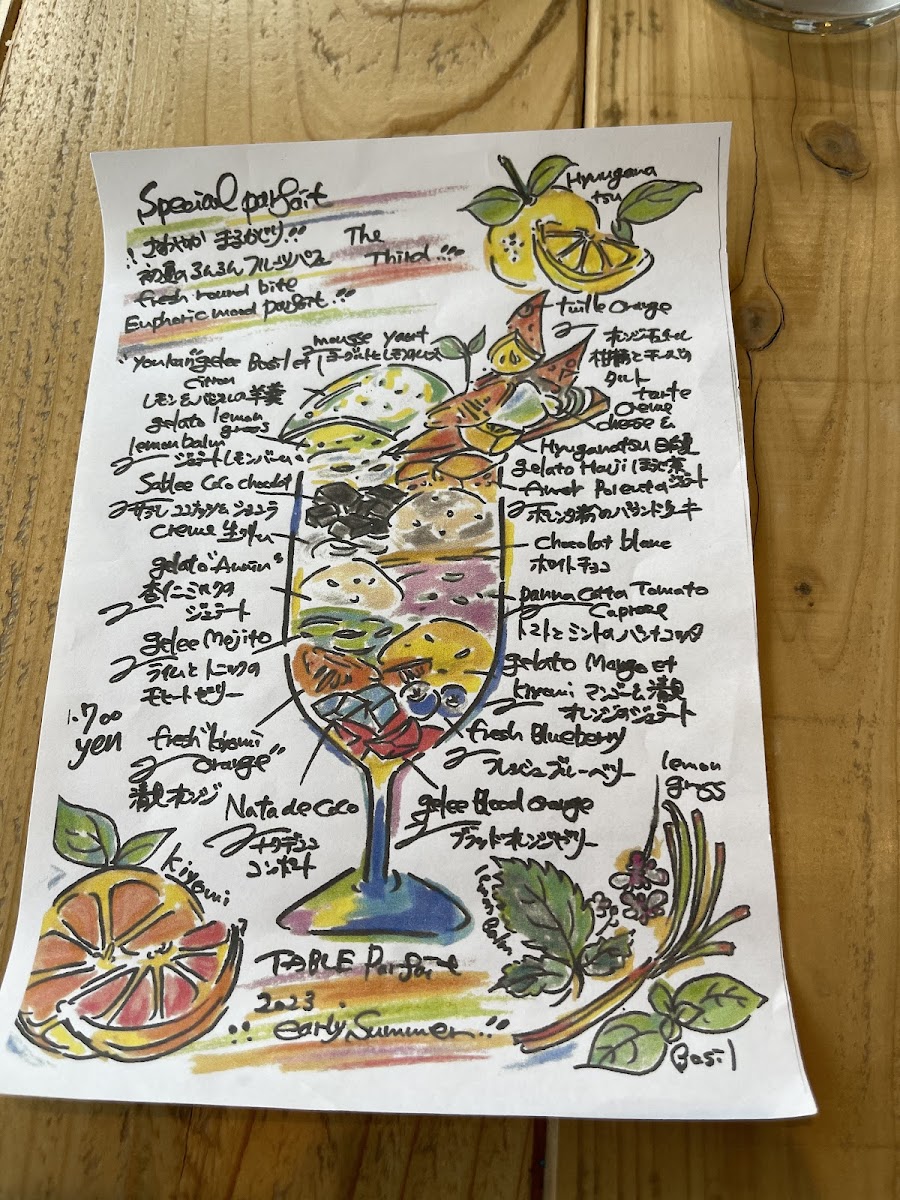 Special parfait
The
Third
fresh round bite
Euphoric mood parfait
Hyuganatsu
mousse yaourt
ヨーグルトとレモンのムース
"youkan" gelee Basil et
citron
レモンとバジルの羊羹
gelato lemon
grass
lemon balm
ジェラートレモンバーム
Sablee Coco chocolat
サブレ ココナッツとショコラ
creme 生クリーム
gelato "Annin"
杏仁ミルクの
ジェラート
gelee Mojito
ライムとトニックの
モヒートゼリー
1.700
yen
fresh "kiyomi
orange"
清見オレンジ
Nata de coco
ナタデココ
コンポート
tuille orange
オレンジチュイル
柑橘とチーズの
タルト
tarte
creme
cheese &
Hyuganatsu 日向夏
gelato Houji ほうじ茶
ジェラート
Polenta
ポレンタ粉のパウンドケーキ
chocolat blanc
ホワイトチョコ
panna cotta Tomato
Caprese
トマトとミントのパンナコッタ
gelato Mango et
kiyomi マンゴーと清見
オレンジのジェラート
fresh Blueberry
フレッシュブルーベリー
gelee Blood orange
ブラッドオレンジゼリー
lemon
grass
kiyomi
lemon balm
TABLE Parfait
2023.
early Summer
Basil